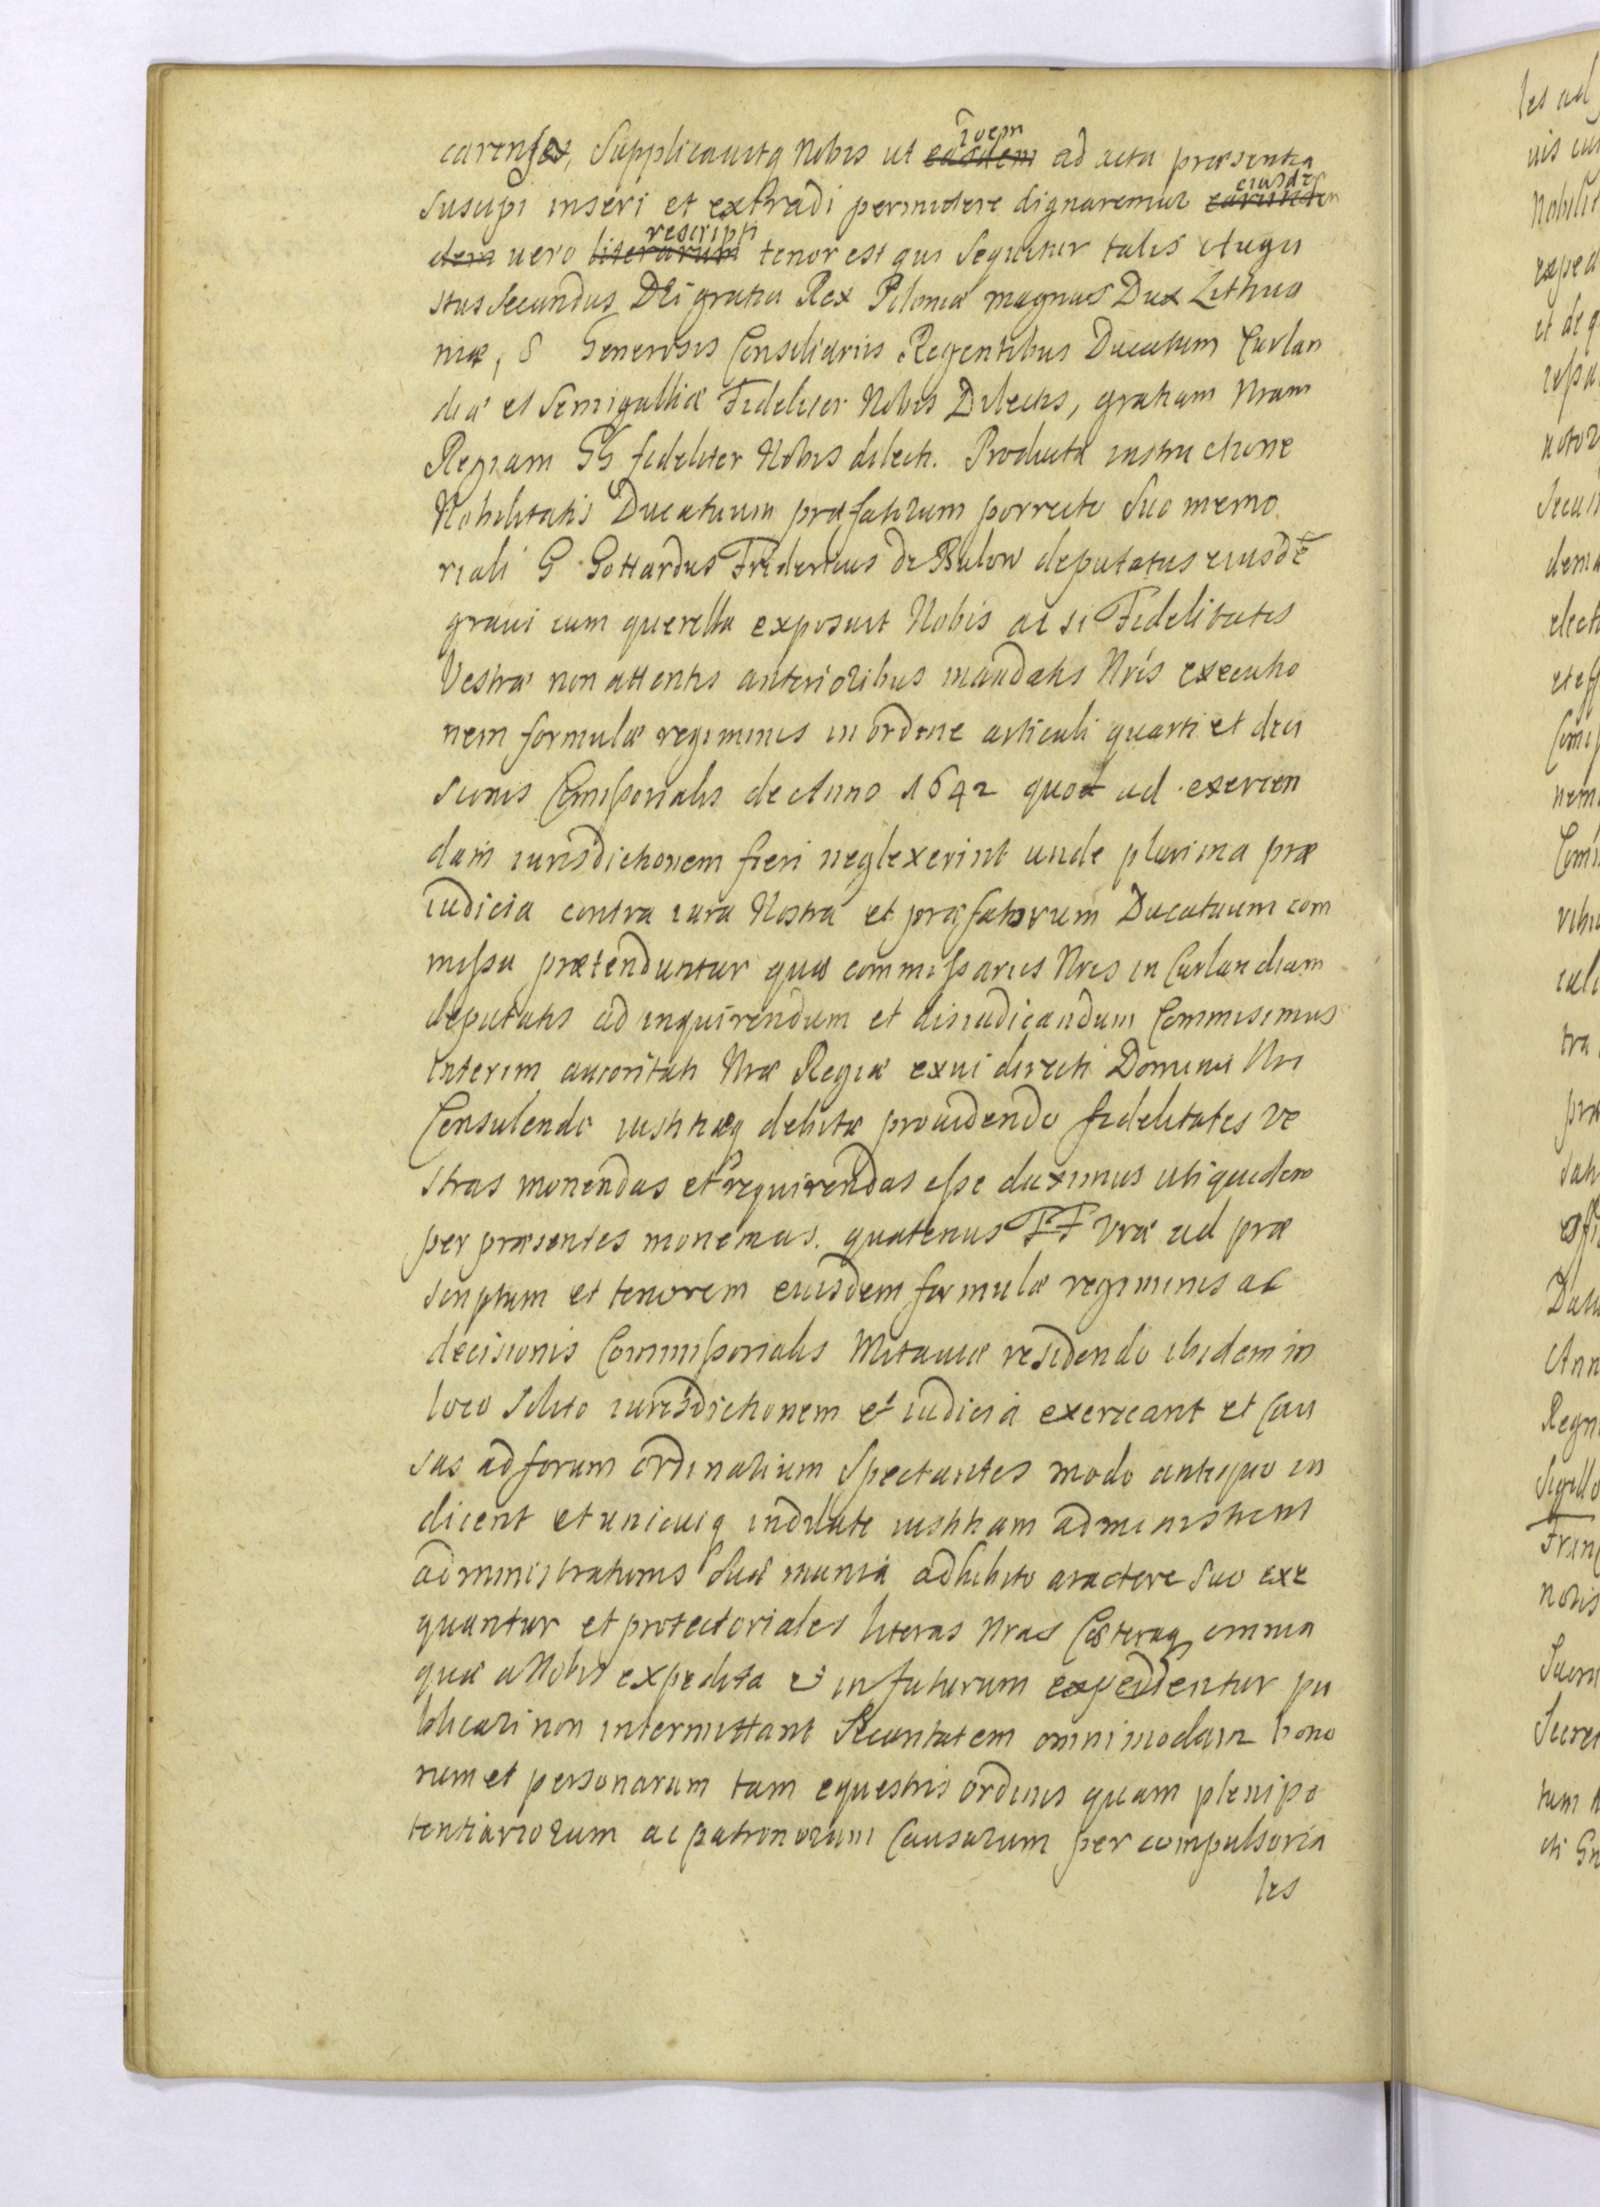 carenses, Supplicavitq Nobis ut easdem idem ad acta præsentia
suscipi inseri et extradi permittere dignaremur earunden eiusdē
dem uero literarum rescripti tenor est qui sequitur talis Augu
stus Secundus Dei gratia Rex Poloniæ magnus Dux Lithua
niæ, & Generosis Consiliariis Regentibus Ducatum Curlan
diæ et Semigalliæ Fideliter Nobis Dilectis, gratiam Nram
Regiam GG fideliter Nobis dilecti. Producta instructione
Nobilitatis Ducatuum præfatorum porrecto suo memo
riali G Gottardus Fridericus de Bulow deputatus eiusdē
graui cum querella exposuit Nobis ac si Fidelitates
Vestræ non attentis anterioribus mandatis Nris executio
nem formulæ regiminis in ordine articuli quarti et deci
sionis Comissorialis de Anno 1642 quoad ad exercen
dam iurisdictionem fieri neglexerint unde plurima præ
iudicia contra iura Nostra et præfatorum Ducatuum com
missa prætenduntur quæ commissariis Nris in Curlandiam
deputatis ad inquirendum et disiudicandum Commisimus
interim autoritati Nræ Regiæ ex ui directi Dominii Nri
Consulendo iustitiæq debitæ prouidendo fidelitates ve
stras monendas et requirendas esse duximus uti quidem
per præsentes monemus. quatenus FF Vræ ad præ
scriptum et tenorem eiusdem formulæ regiminis ac
decisionis Commissorialis Mitauiæ residendo ibidem in
loco solito iurisdictionem et iudicia exerceant et Cau
sas ad forum ordinarium Spectantes modo antiquo iu
dicent et unicuiq indilate iustitiam administrent
administrationis suæ munia adhibito aractere suo exe
quantur et protectoriales literas Nras Cæteraq omnia
quæ a Nobis expedita et in futurum expedientur pu
blicari non intermittant Securitatem omnimodam bono
rum et personarum tam equestris ordinis quam plenipo
tentiariorum ac patronorum Causarum per compulsoria
les